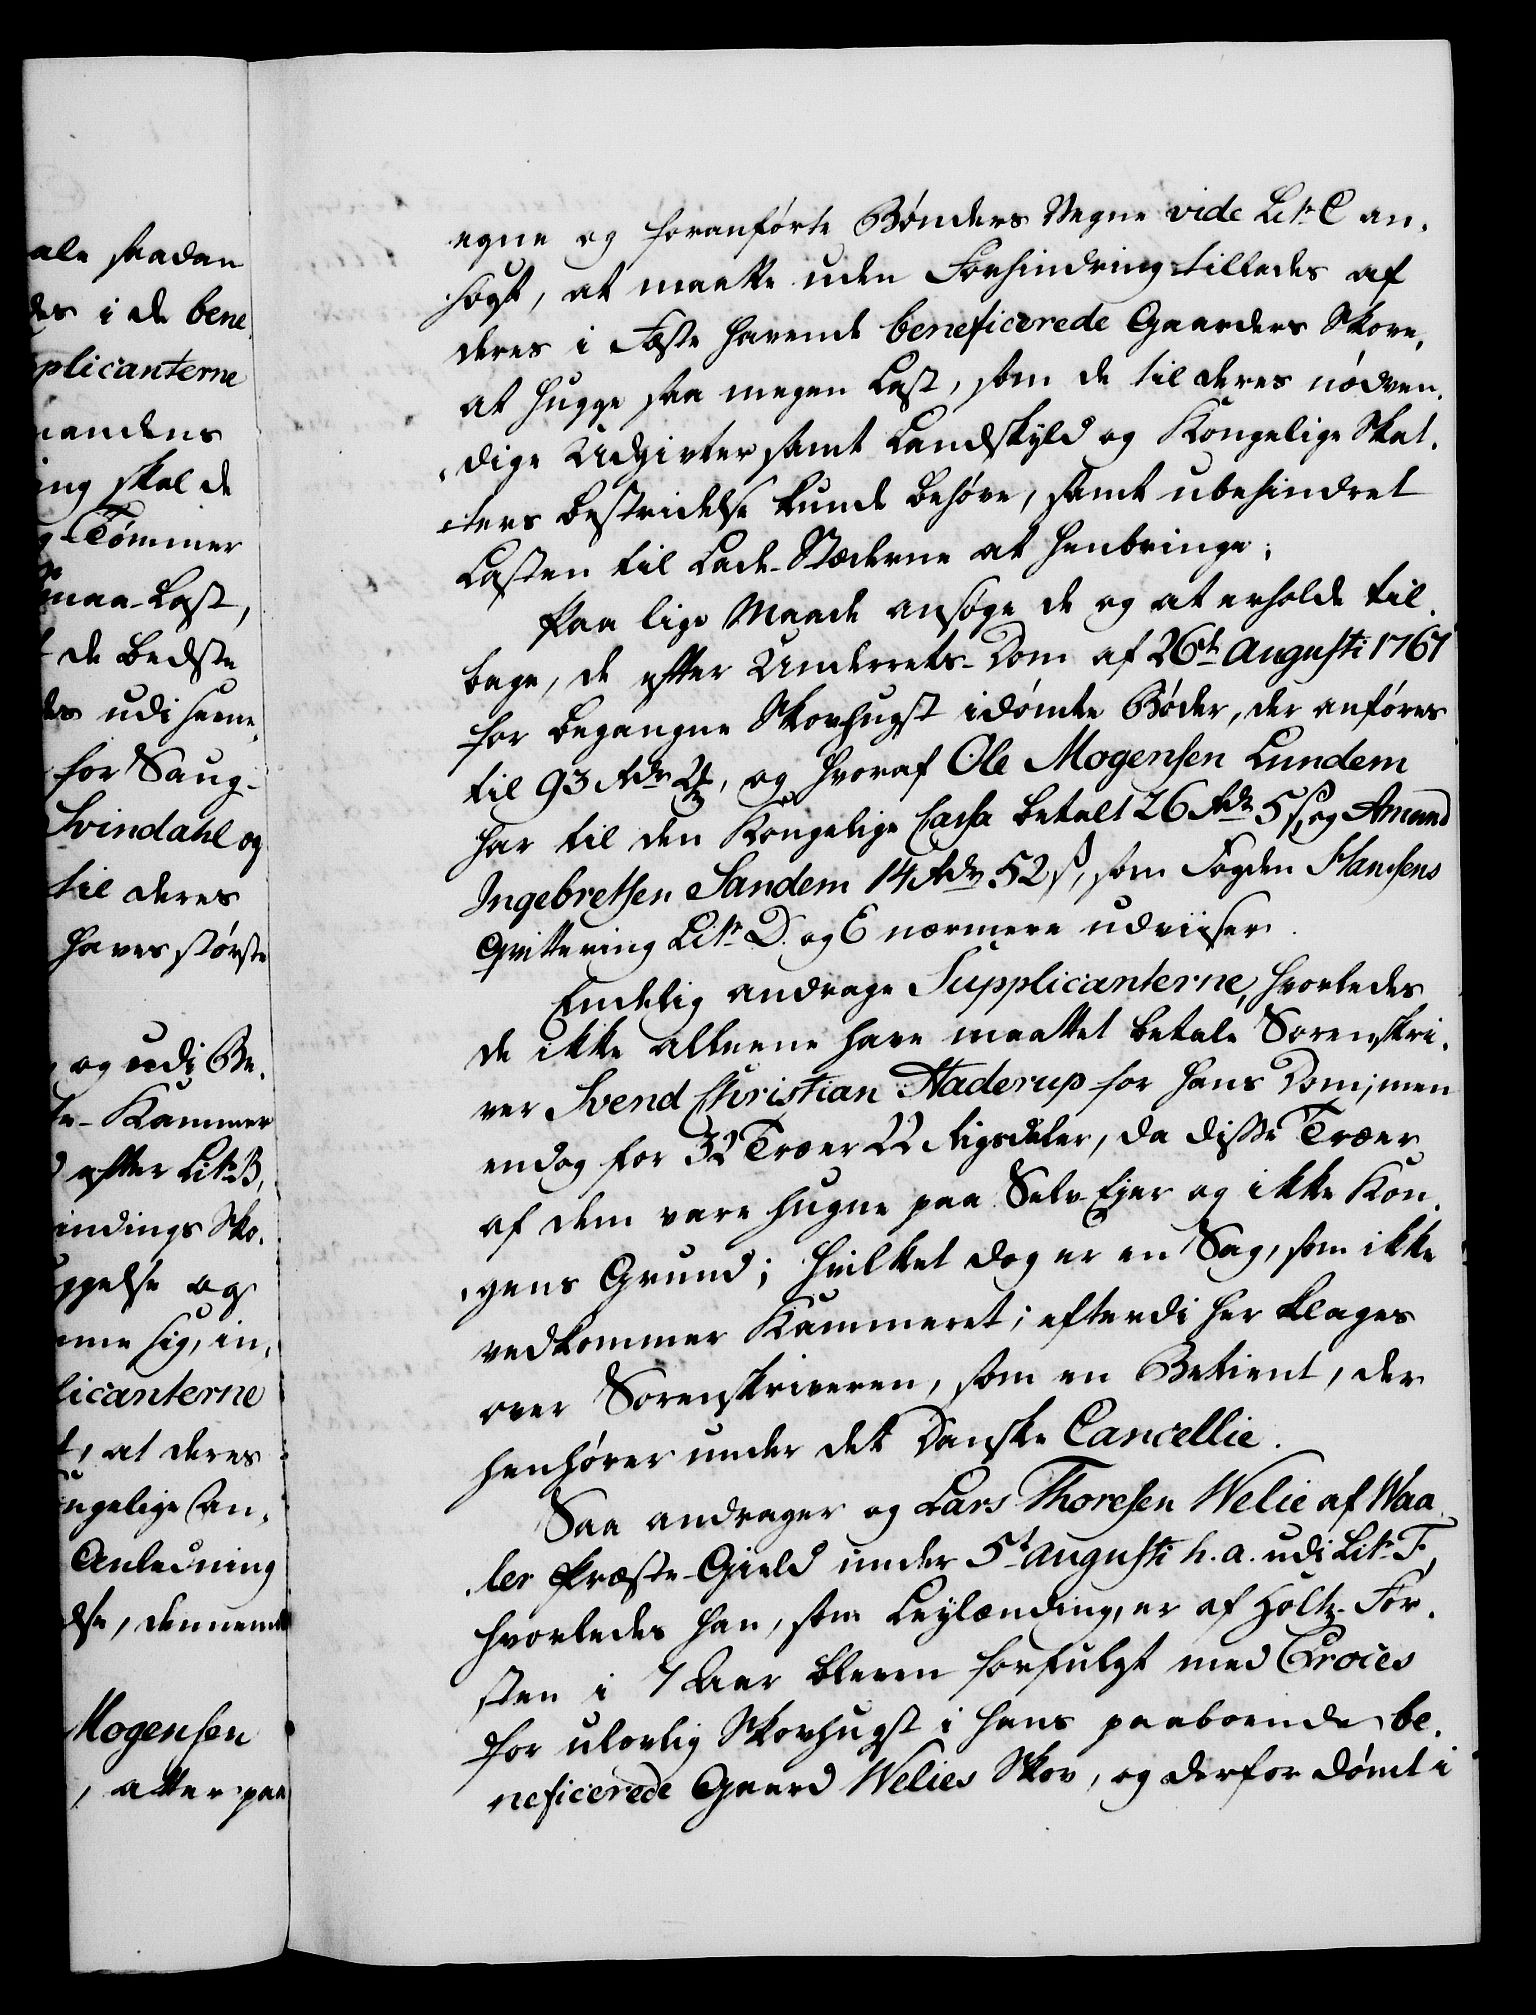 ale saadan
des i de bene
plicanterne
mandens
ing skal de
og Tømmer
smaa-Last,
de bedste
des udi henne,
for Saug-
Svindahl og
til deres
haver største
og udi Be,
te-Kammer
efter Litr B,
indings Sko,
ggelse og
me sig, in,
licanterne
t, at deres
ngelige An,
Anledning
dse, dennem
Mogensen
, atter paa
egne og foranførte Bønders Vegne vide Litr C an,
søgt, at maatte uden Forhindring tillades af
deres i Fæste havende beneficerede Gaarders Skove,
at hugge saa megen Last, som de til deres nødven,
dige Udgivter samt Landskyld og Kongelige Skat,
ters bestridelse kunde behøve, samt ubehindret
Lasten til Lade-Stæderne at henbringe;
Paa lige Maade ansøge de og at erholde til,
bage, de efter Underrets-Dom af 26de Augusti 1767
for begangne Skovhugst idømte Bøder, der anføres
til 93 Rdr 2 , og hvoraf Ole Mogensen Lundem
har til den Kongelige Cassa betalt 26 Rdr 5 s, og Amund
Ingebretsen Sandem 14 Rdr 52 s, som Fogden Hansens
Qvittering Litr D. og E nærmere udviiser.
Endelig andrage Supplicanterne, hvorledes
de ikke alleene have maattet betale Sorenskri,
ver Svend Christian Haderup for hans Dom; men
endog for 32 Træer 22 Rigsdaler, da disse Træer
af dem vare hugne paa Selv-Ejer og ikke Kon,
gens Grund; hvilket dog er en Sag, som ikke
vedkommer Kammeret; efterdi her klages
over Sorenskriveren, som en Betient, der
henhører under det Danske Cancellie.
Saa andrager og Lars Thoresen Welie af Waa,
ler Præste-Gield under 5t Augusti h. a. udi Litr F,
hvorledes han, som Leylænding, er af Holtz-För,
sten i 7 Aar bleven forfulgt med Proces
for ulovlig Skovhugst i hans paaboende be,
neficerede Gaard Welies Skov, og derfor dømt i